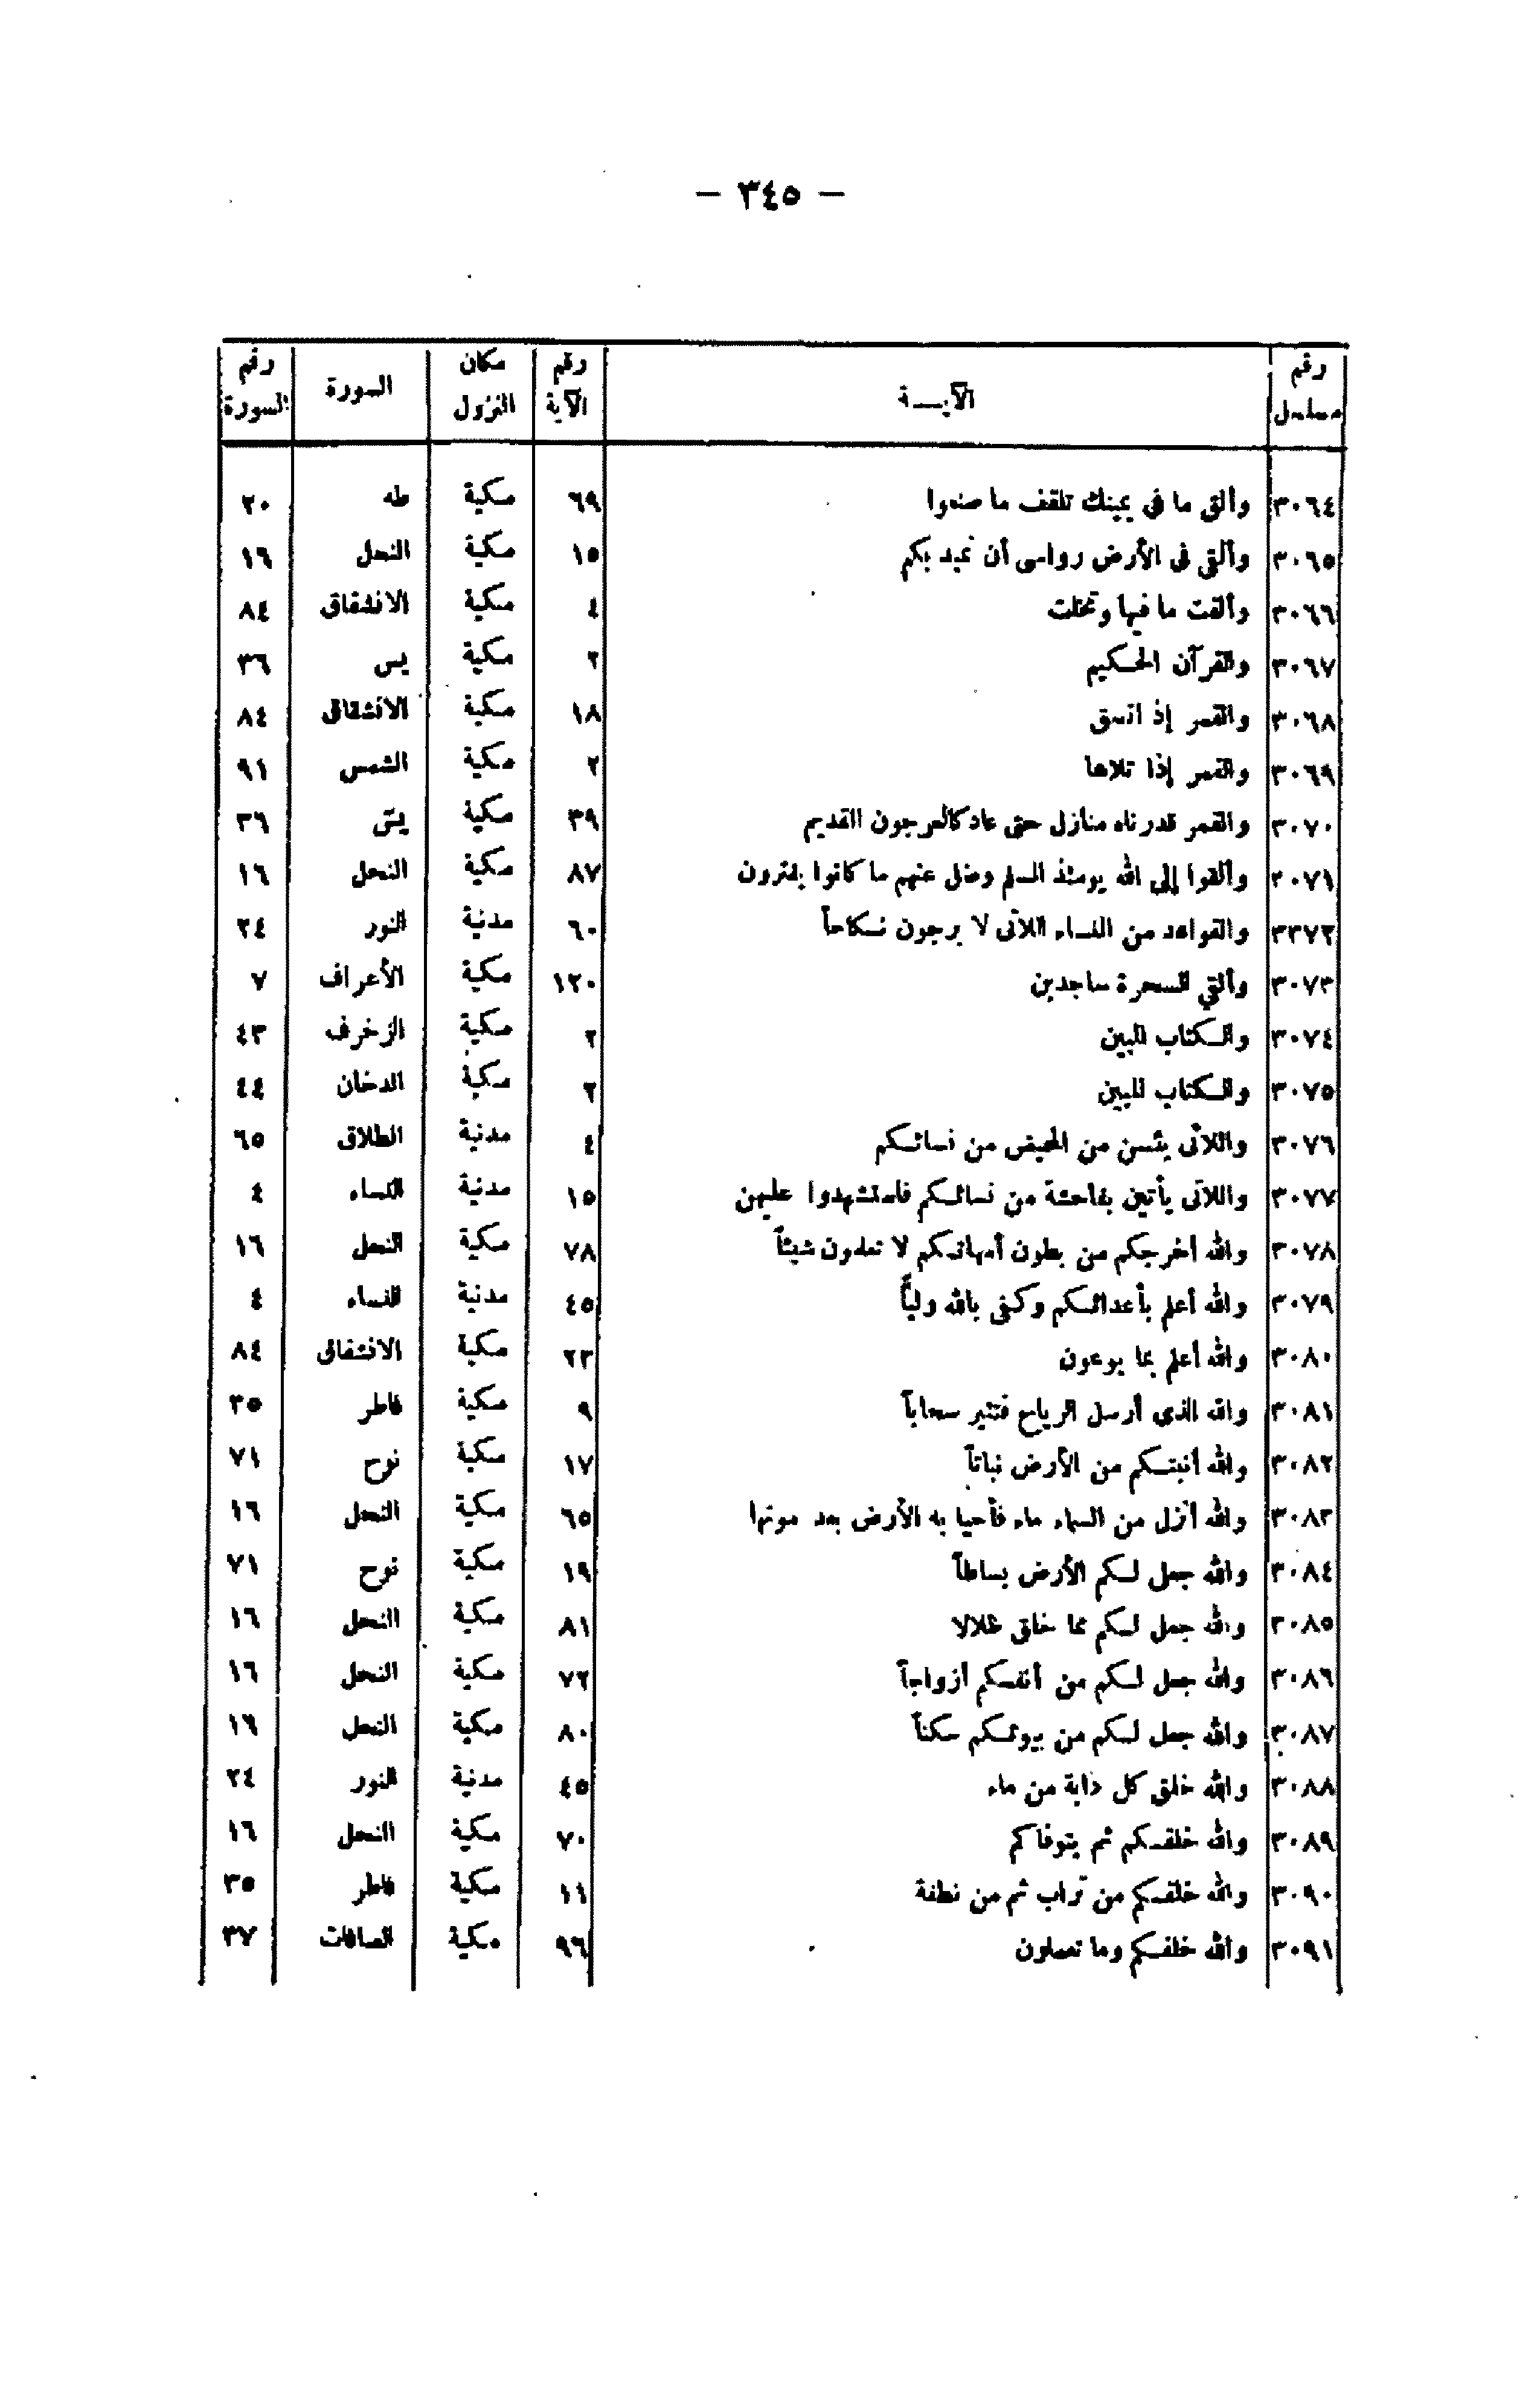 — ٣٤٥ —
رقم مسلسل | الآيـــة | رقم الآية | مكان النزول | السورة | رقم السورة
٣٠٦٤ | وألق ما في يمينك تلقف ما صنعوا | ٦٩ | مكية | طه | ٢٠
٣٠٦٥ | وألقى فى الأرض رواسى أن تميد بكم | ١٥ | مكية | النحل | ١٦
٣٠٦٦ | وألقت ما فيها وتخلت | ٤ | مكية | الانشقاق | ٨٤
٣٠٦٧ | والقرآن الحكيم | ٢ | مكية | يس | ٣٦
٣٠٦٨ | والقمر إذ اتسق | ١٨ | مكية | الانشقاق | ٨٤
٣٠٦٩ | والقمر إذا تلاها | ٢ | مكية | الشمس | ٩١
٣٠٧٠ | والقمر قدرناه منازل حتى عاد كالعرجون القديم | ٣٩ | مكية | يس | ٣٦
٣٠٧١ | وألقوا إلى الله يومئذ السلم وضل عنهم ما كانوا يفترون | ٨٧ | مكية | النحل | ١٦
٣٣٧٢ | والقواعد من النساء اللآتى لا يرجون نكاحاً | ٦٠ | مدنية | النور | ٢٤
٣٠٧٣ | وألقي السحرة ساجدين | ١٢٠ | مكية | الأعراف | ٧
٣٠٧٤ | والكتاب المبين | ٢ | مكية | الزخرف | ٤٣
٣٠٧٥ | والكتاب المبين | ٢ | مكية | الدخان | ٤٤
٣٠٧٦ | واللآئى يئسن من المحيض من نسائكم | ٤ | مدنية | الطلاق | ٦٥
٣٠٧٧ | واللاتى يأتين بفاحشة من نسائكم فاستشهدوا عليهن | ١٥ | مدنية | النساء | ٤
٣٠٧٨ | والله أخرجكم من بطون أمهاتكم لا تعلمون شيئاً | ٧٨ | مكية | النحل | ١٦
٣٠٧٩ | والله أعلم بأعدائكم وكفى بالله ولياً | ٤٥ | مدنية | النساء | ٤
٣٠٨٠ | والله أعلم بما يوعون | ٢٣ | مكية | الانشقاق | ٨٤
٣٠٨١ | والله الذى أرسل الرياح فتثير سحاباً | ٩ | مكية | فاطر | ٣٥
٣٠٨٢ | والله أنبتكم من الأرض نباتاً | ١٧ | مكية | نوح | ٧١
٣٠٨٣ | والله أنزل من السماء ماء فأحيا به الأرض بعد موتها | ٦٥ | مكية | النحل | ١٦
٣٠٨٤ | والله جعل لكم الأرض بساطاً | ١٩ | مكية | نوح | ٧١
٣٠٨٥ | والله جعل لكم مما خلق ظلالا | ٨١ | مكية | النحل | ١٦
٣٠٨٦ | والله جعل لكم من أنفسكم أزواجاً | ٧٢ | مكية | النحل | ١٦
٣٠٨٧ | والله جعل لكم من بيوتكم سكناً | ٨٠ | مكية | النحل | ١٦
٣٠٨٨ | والله خلق كل دابة من ماء | ٤٥ | مدنية | النور | ٢٤
٣٠٨٩ | والله خلقكم ثم يتوفاكم | ٧٠ | مكية | النحل | ١٦
٣٠٩٠ | والله خلقكم من تراب ثم من نطفة | ١١ | مكية | فاطر | ٣٥
٣٠٩١ | والله خلقكم وما تعملون | ٩٦ | مكية | الصافات | ٣٧